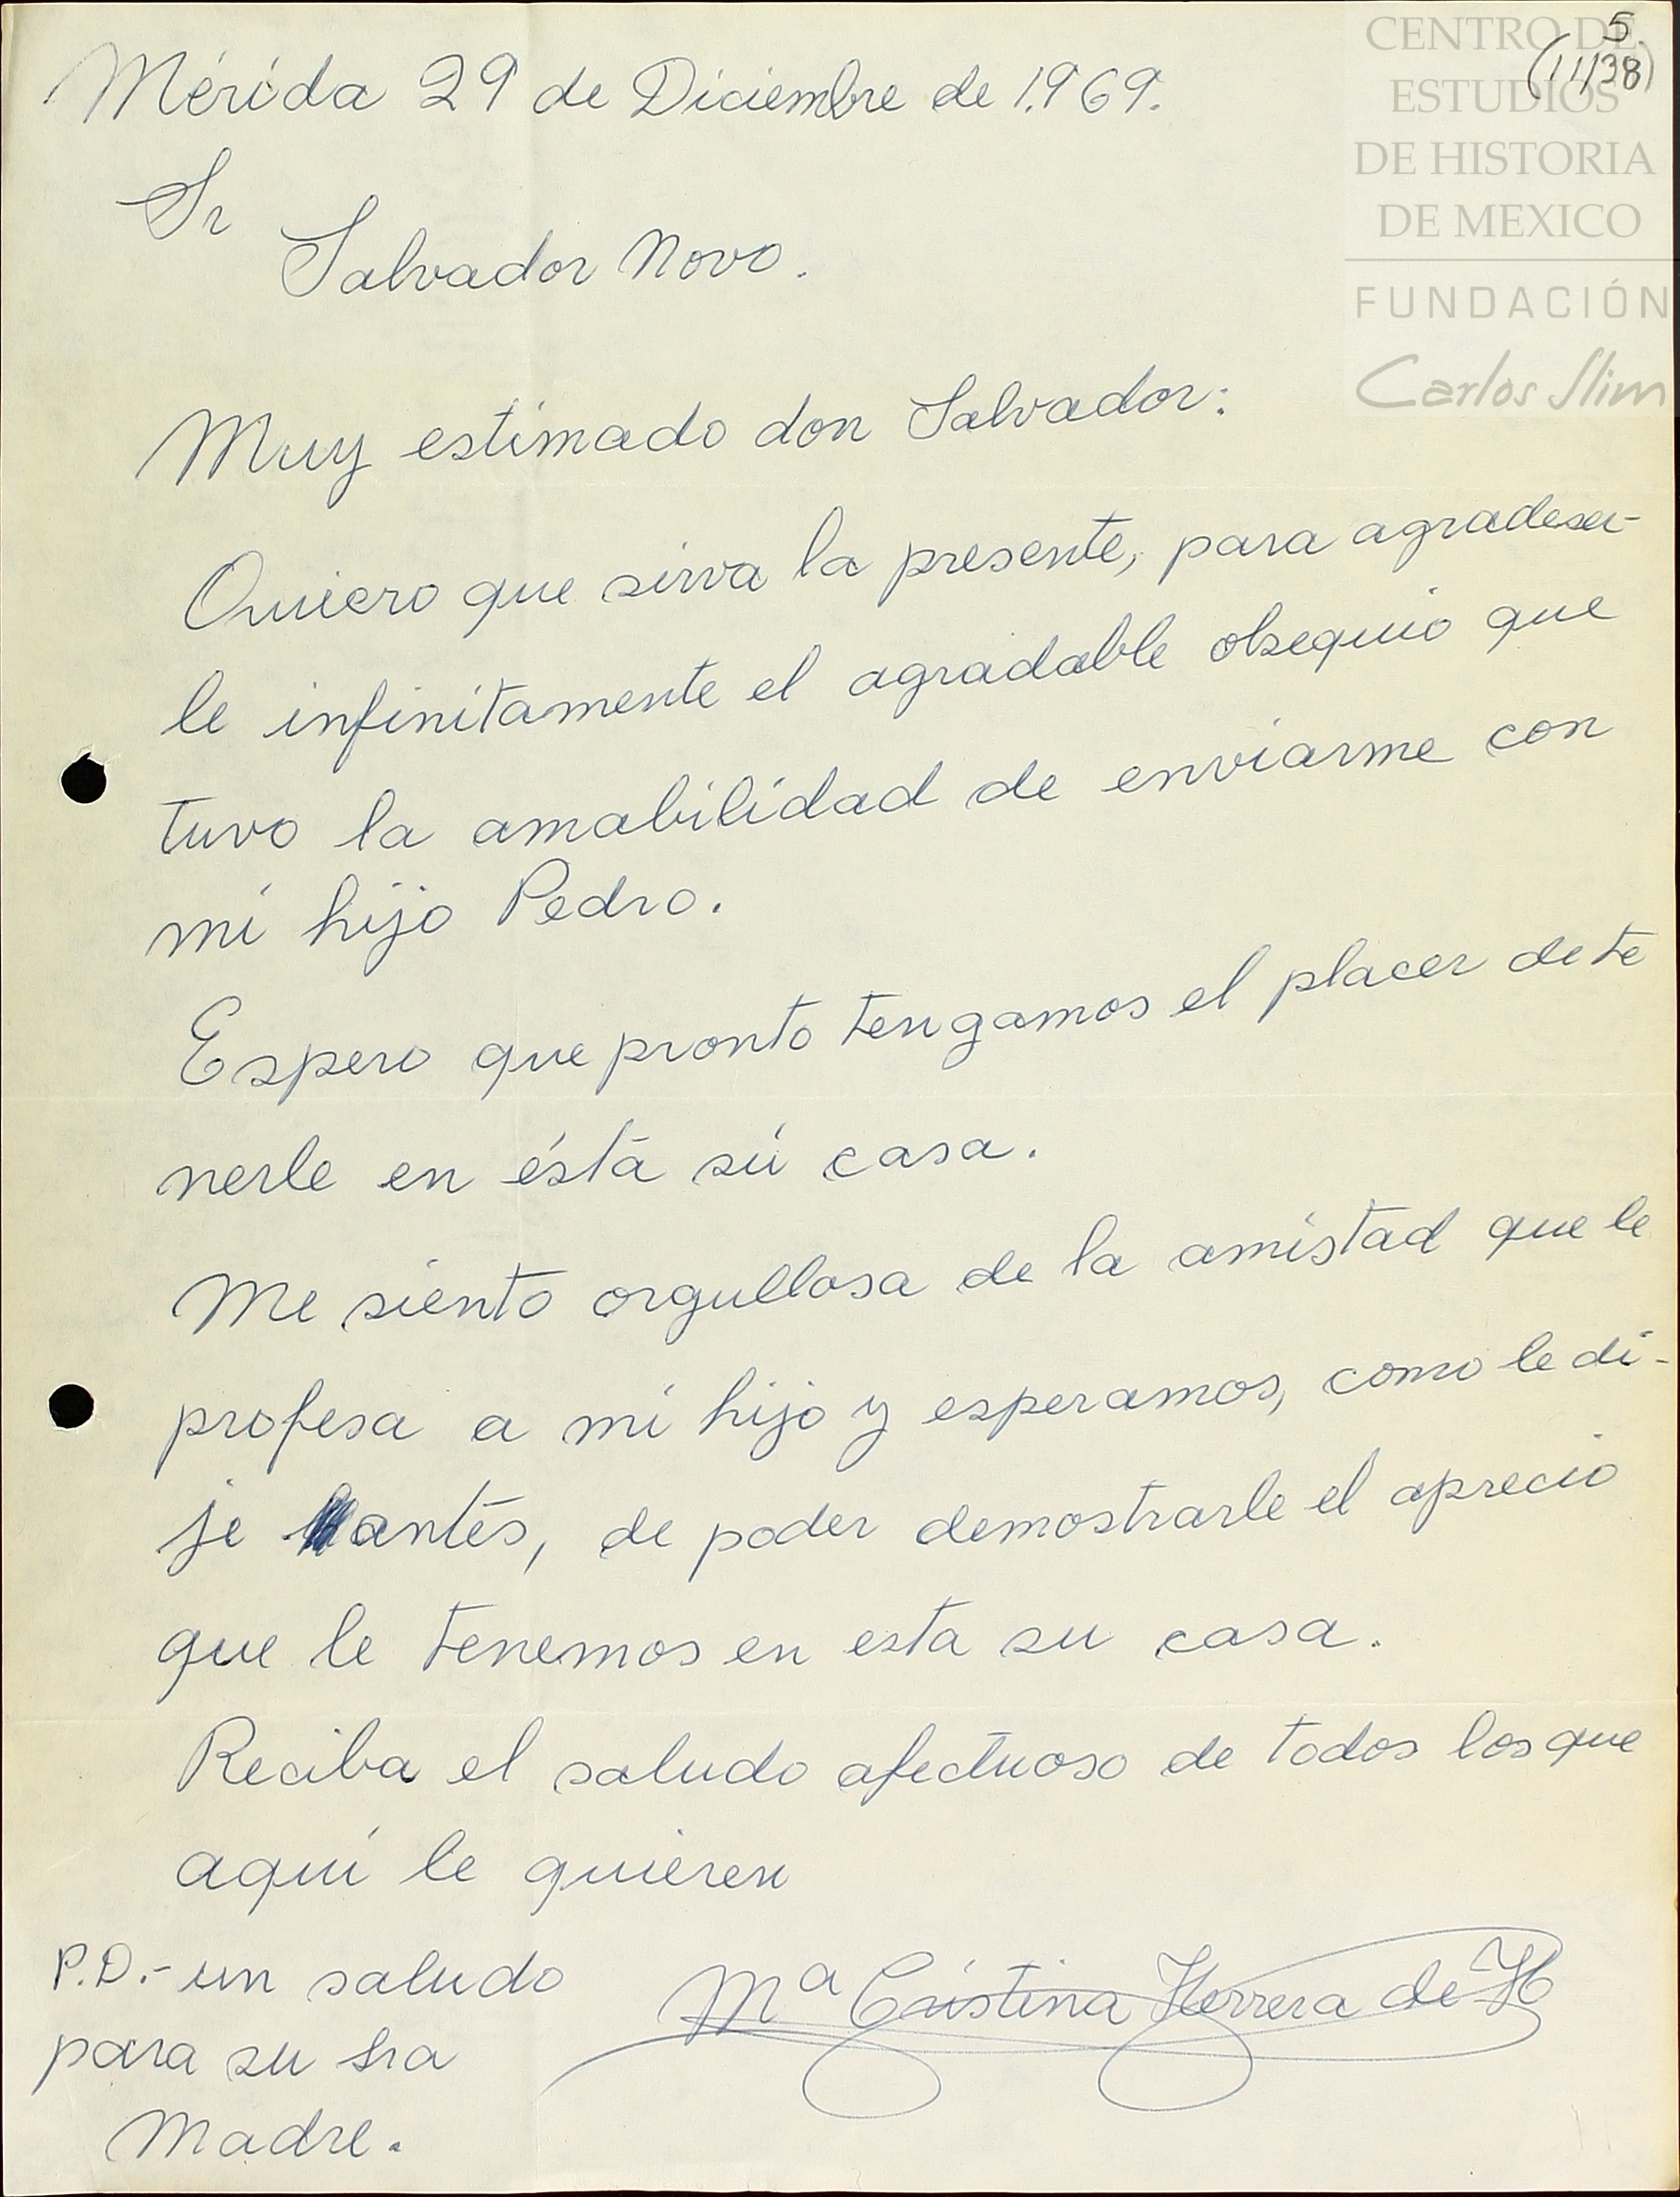 5.
(11138)
CENTRO DE
ESTUDIOS
DE HISTORIA
DE MEXICO
FUNDACIÓN
Carlos Slim
Mérida 29 de Diciembre de 1.969.
Sr
Salvador Novo.
Muy estimado don Salvador:
Quiero que sirva la presente, para agradeser-
le infinitamente el agradable obsequio que
tuvo la amabilidad de enviarme con
mi hijo Pedro.
Espero que pronto tengamos el placer de te
nerle en ésta sú casa.
Me siento orgullosa de la amistad que le
profesa a mi hijo y esperamos, como le di-
je antes, de poder demostrarle el aprecio
que le tenemos en esta su casa.
Reciba el saludo afectuoso de todos los que
aquí le quieren
Mª Cristina Herrera de H
P.D.- un saludo
para su sra
Madre.